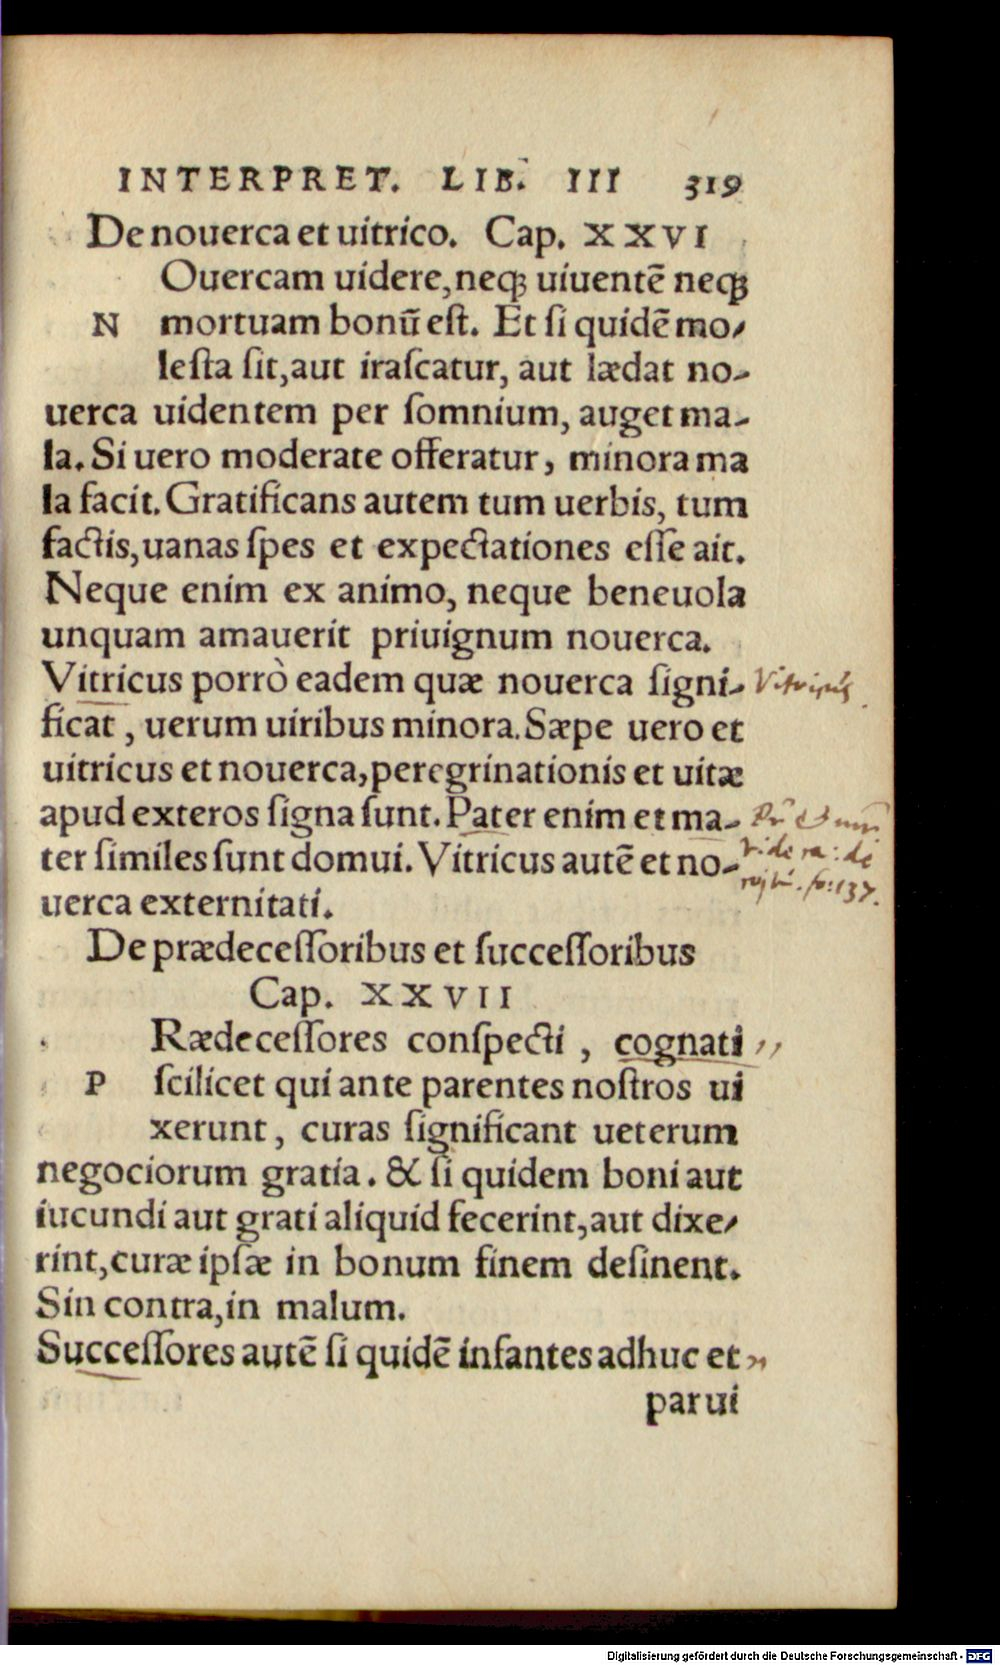 INTERPRET. LIB. III 319
De nouerca et uitrico. Cap. XXVI
Ouercam uidere, neqꝫ uiuentē neqꝫ
N mortuam bonū est. Et si quidē mo-
lesta sit, aut irascatur, aut lædat no-
uerca uidentem per somnium, auget ma-
la. Si uero moderate offeratur, minora ma
la facit. Gratificans autem tum uerbis, tum
factis, uanas spes et expectationes esse ait.
Neque enim ex animo, neque beneuola
unquam amauerit priuignum nouerca.
Vitricus porrò eadem quæ nouerca signi-
ficat, uerum uiribus minora. Sæpe uero et
uitricus et nouerca, peregrinationis et uitæ
apud exteros signa sunt. Pater enim et ma-
ter similes sunt domui. Vitricus autē et no-
uerca externitati.
De prædecessoribus et successoribus
Cap. XXVII
Rædecessores conspecti, cognati
P scilicet qui ante parentes nostros ui
xerunt, curas significant ueterum
negociorum gratia. & si quidem boni aut
iucundi aut grati aliquid fecerint, aut dixe-
rint, curæ ipsæ in bonum finem desinent.
Sin contra, in malum.
Successores autē si quidē infantes adhuc et
parui
fo: 137.
Digitalisierung gefördert durch die Deutsche Forschungsgemeinschaft - DFG